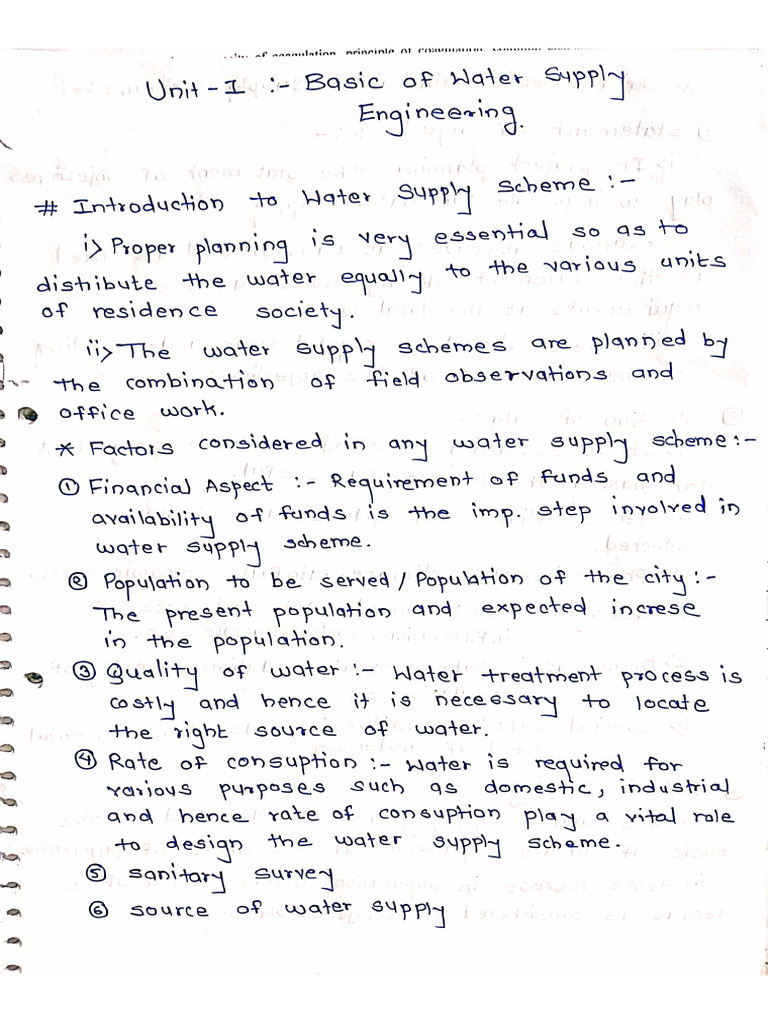 of coagulation, principle of coagulation, common
Unit - I :- Basic of Water Supply
Engineering.
# Introduction to Water Supply Scheme :-
i> Proper planning is very essential so as to
distibute the water equally to the various units
of residence society.
ii> The water supply schemes are planned by
the combination of field observations and
office work.
* Factors considered in any water supply scheme :-
① Financial Aspect :- Requirement of funds and
availability of funds is the imp. step involved in
water supply scheme.
② Population to be served / Population of the city :-
The present population and expected increse
in the population.
③ Quality of water :- Water treatment process is
costly and hence it is necessary to locate
the right source of water.
④ Rate of consuption :- Water is required for
various purposes such as domestic, industrial
and hence rate of consuption play a vital role
to design the water supply scheme.
⑤ Sanitary Survey
⑥ Source of water supply